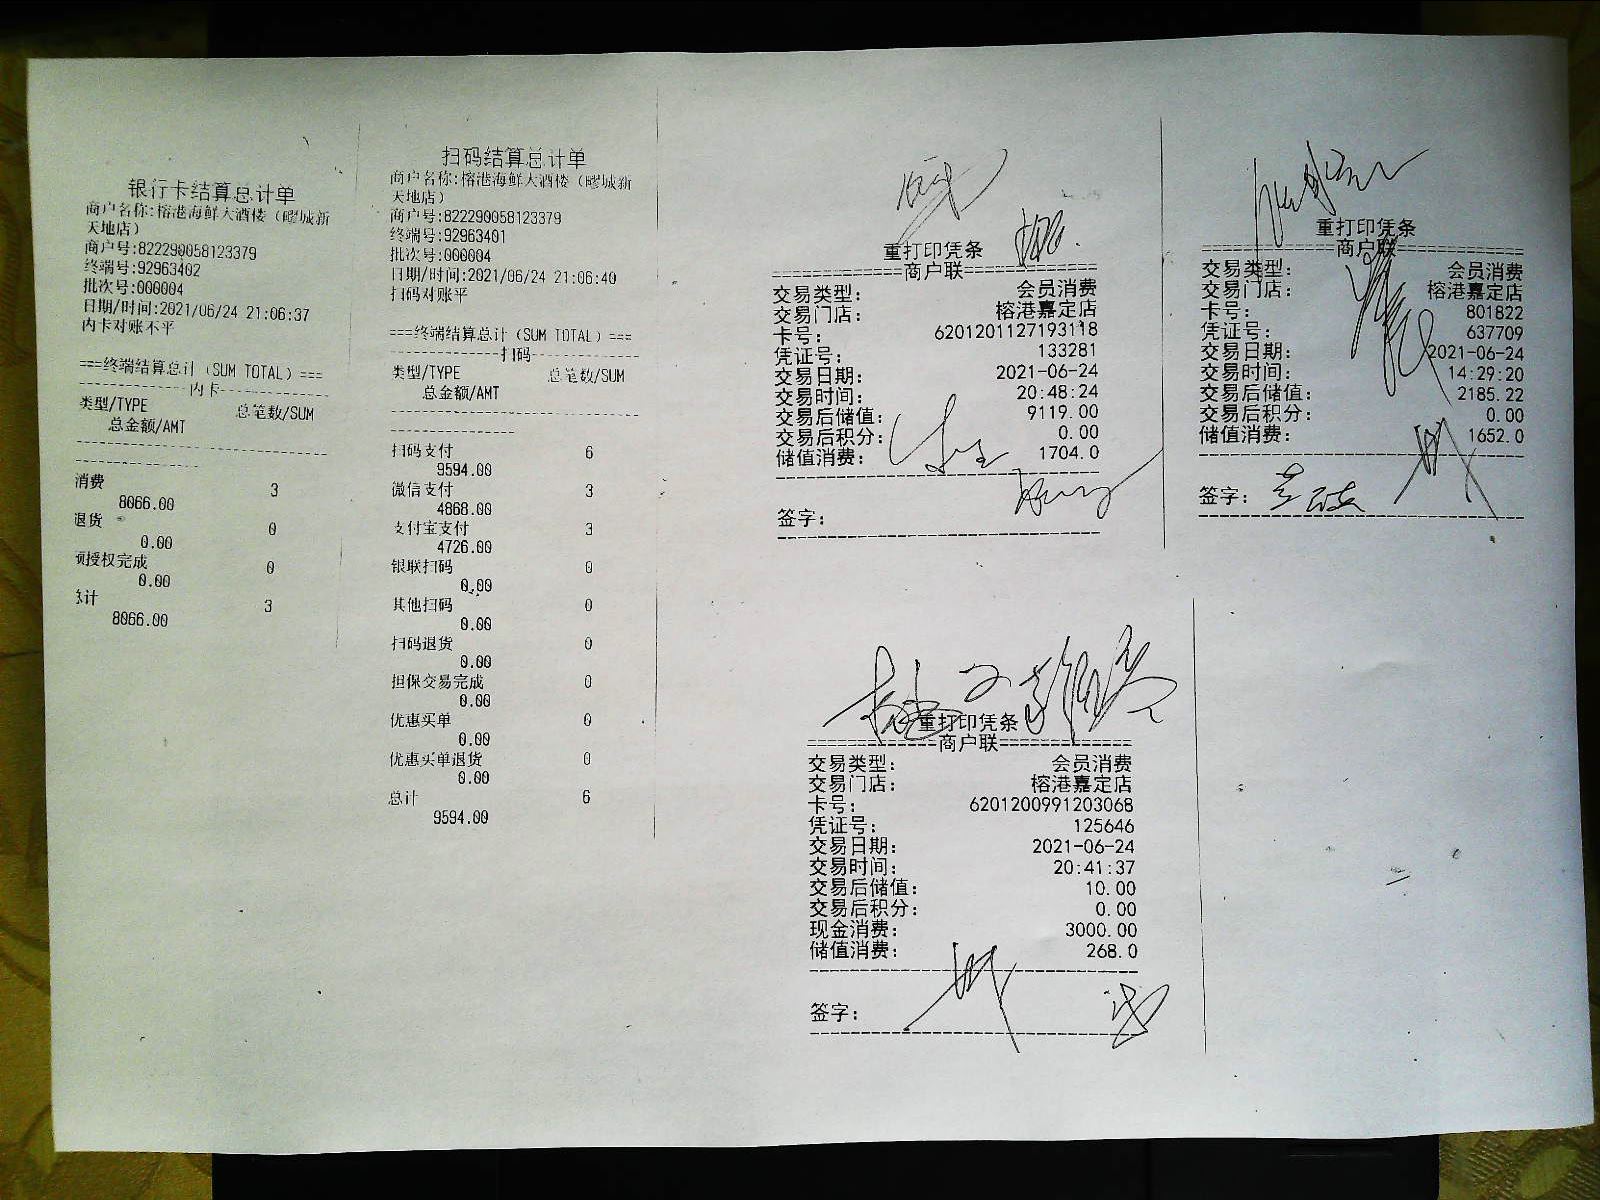 银行卡结算总计单
商户名称:榕港海鲜大酒楼（疁城新
天地店）
商户号:822290058123379
终端号:92963402
批次号:000004
日期/时间:2021/06/24 21:06:37
内卡对账不平
===终端结算总计（SUM TOTAL）===
----------------内卡----------------
类型/TYPE 总笔数/SUM
总金额/AMT
消费 3
8066.00
退货 0
0.00
预授权完成 0
0.00
总计 3
8066.00
扫码结算总计单
商户名称:榕港海鲜大酒楼（疁城新
天地店）
商户号:822290058123379
终端号:92963401
批次号:000004
日期/时间:2021/06/24 21:06:40
扫码对账平
===终端结算总计（SUM TOTAL）===
----------------扫码----------------
类型/TYPE 总笔数/SUM
总金额/AMT
扫码支付 6
9594.00
微信支付 3
4868.00
支付宝支付 3
4726.00
银联扫码 0
0.00
其他扫码 0
0.00
扫码退货 0
0.00
担保交易完成 0
0.00
优惠买单 0
0.00
优惠买单退货 0
0.00
总计 6
9594.00
重打印凭条
=============商户联=============
交易类型: 会员消费
交易门店: 榕港嘉定店
卡号: 6201201127193118
凭证号: 133281
交易日期: 2021-06-24
交易时间: 20:48:24
交易后储值: 9119.00
交易后积分: 0.00
储值消费: 1704.0
签字:
重打印凭条
=============商户联=============
交易类型: 会员消费
交易门店: 榕港嘉定店
卡号: 801822
凭证号: 637709
交易日期: 2021-06-24
交易时间: 14:29:20
交易后储值: 2185.22
交易后积分: 0.00
储值消费: 1652.0
签字:
重打印凭条
=============商户联=============
交易类型: 会员消费
交易门店: 榕港嘉定店
卡号: 6201200991203068
凭证号: 125646
交易日期: 2021-06-24
交易时间: 20:41:37
交易后储值: 10.00
交易后积分: 0.00
现金消费: 3000.00
储值消费: 268.0
签字: